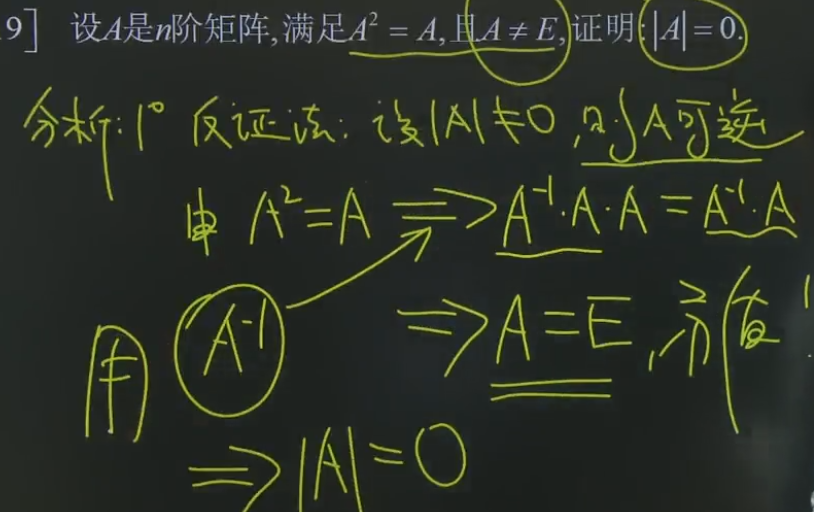 9] 设A是n阶矩阵,满足A² = A,且A ≠ E,证明:|A| = 0.
分析:1° 反证法:设|A|≠0,则A可逆
由 A²=A ⟹ A⁻¹·A·A = A⁻¹·A
用 A⁻¹ ⟹ A=E,矛盾!
⟹ |A|=0